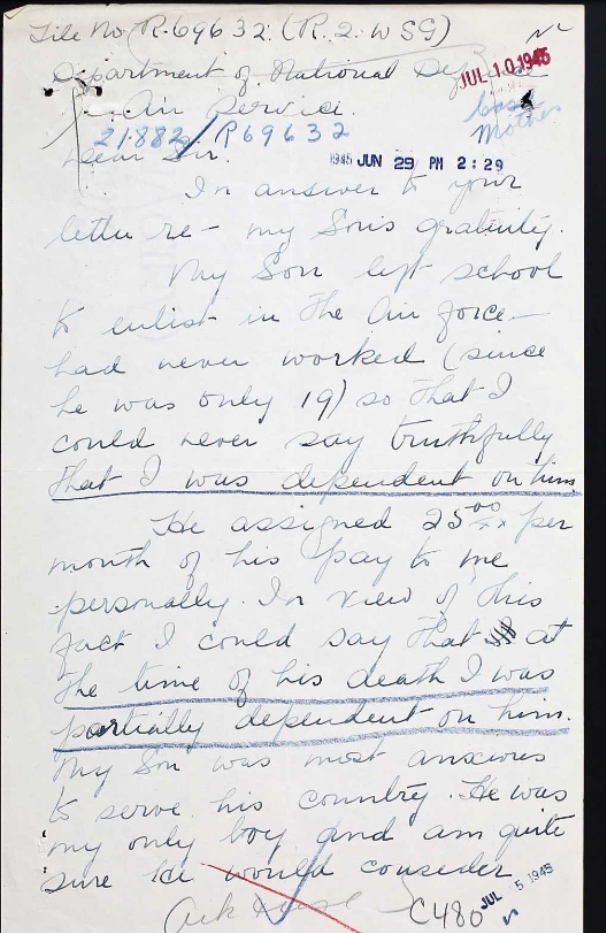 File No R.69632. (R.2. W S G)
JUL 10 1945
Department of National Defense
for Air Service.
Mother
21.882 / R69632
Dear Sir.
1945 JUN 29 PM 2:29
In answer to your
letter re - my Son's gratuity.
My Son left school
to enlist in the Air Force —
had never worked (since
he was only 19) so that I
could never say truthfully
that I was dependent on him.
He assigned 25.00 per
month of his pay to me
personally. In view of this
fact I could say that at
the time of his death I was
partially dependent on him.
My Son was most anxious
to serve his country. He was
my only boy and am quite
sure he would consider
C480
JUL 5 1945